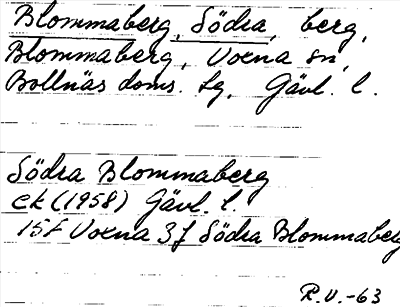 Blommaberg, Södra, berg,
Blommaberg, Voxna sn,
Bollnäs doms. lg, Gävl. l.
Södra Blommaberg
ek (1958) Gävl. l.
15F Voxna 3f Södra Blommaberg
R.U.-63